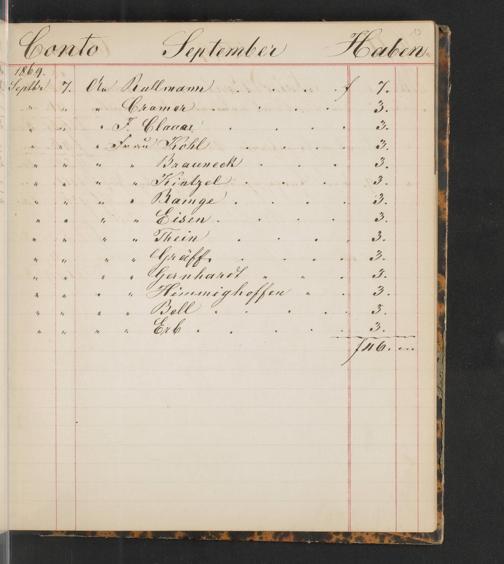 Conto September Haben
1869.
Septbr 7. An Rullmann . . f 7.
" " " " Cramer . . . . 3.
" " " " F. Clauer . . . . 3.
" " " " Frau Kohl . . . . 3.
" " " " " Brauneck . . . . 3.
" " " " " Kintzel . . . . 3.
" " " " " Ramge . . . . 3.
" " " " " Eisen . . . . 3.
" " " " " Thein . . . . 3.
" " " " " Gräff . . . . 3.
" " " " " Gernhardt " " . 3.
" " " " " Himmighoffen . . 3.
" " " " " Bell . . . . . 3.
" " " " " Erb . . . . . 3.
f 46. —